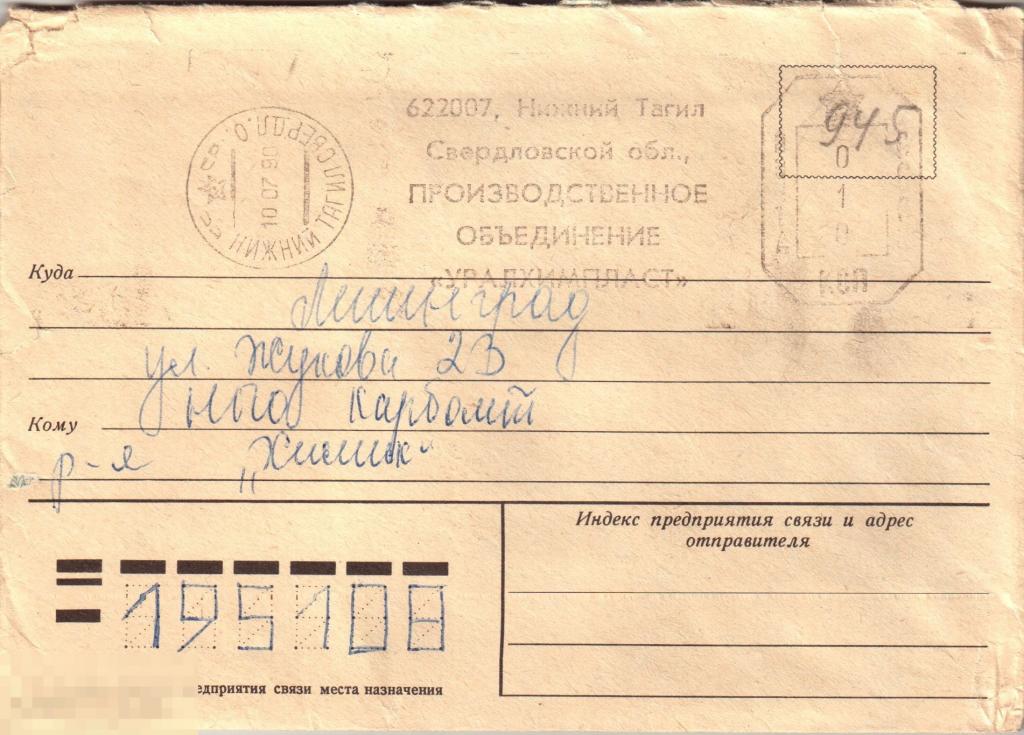 622007, Нижний Тагил
Свердловской обл.,
ПРОИЗВОДСТВЕННОЕ
ОБЪЕДИНЕНИЕ
«УРАЛХИМПЛАСТ»
НИЖНИЙ ТАГИЛ СВЕРДЛ. О.
СССР
10 07 90
945
0
1
0
КСП
Куда
Ленинград
ул. Жукова 23
НПО Карболит
Кому
р-я "Химик"
195108
Индекс предприятия связи и адрес
отправителя
предприятия связи места назначения